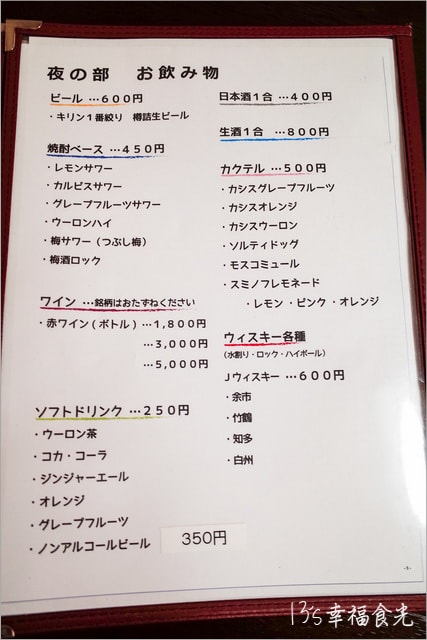 夜の部　お飲み物
ビール …６００円
・キリン１番絞り　樽詰生ビール
焼酎ベース …４５０円
・レモンサワー
・カルピスサワー
・グレープフルーツサワー
・ウーロンハイ
・梅サワー（つぶし梅）
・梅酒ロック
ワイン …銘柄はおたずねください
・赤ワイン(ボトル) …１,８００円
…３,０００円
…５,０００円
ソフトドリンク …２５０円
・ウーロン茶
・コカ・コーラ
・ジンジャーエール
・オレンジ
・グレープフルーツ
・ノンアルコールビール　350円
日本酒１合 …４００円
生酒１合　…８００円
カクテル …５００円
・カシスグレープフルーツ
・カシスオレンジ
・カシスウーロン
・ソルティドッグ
・モスコミュール
・スミノフレモネード
・レモン・ピンク・オレンジ
ウィスキー各種
（水割り・ロック・ハイボール）
Ｊウィスキー …６００円
・余市
・竹鶴
・知多
・白州
-5-
135幸福食光